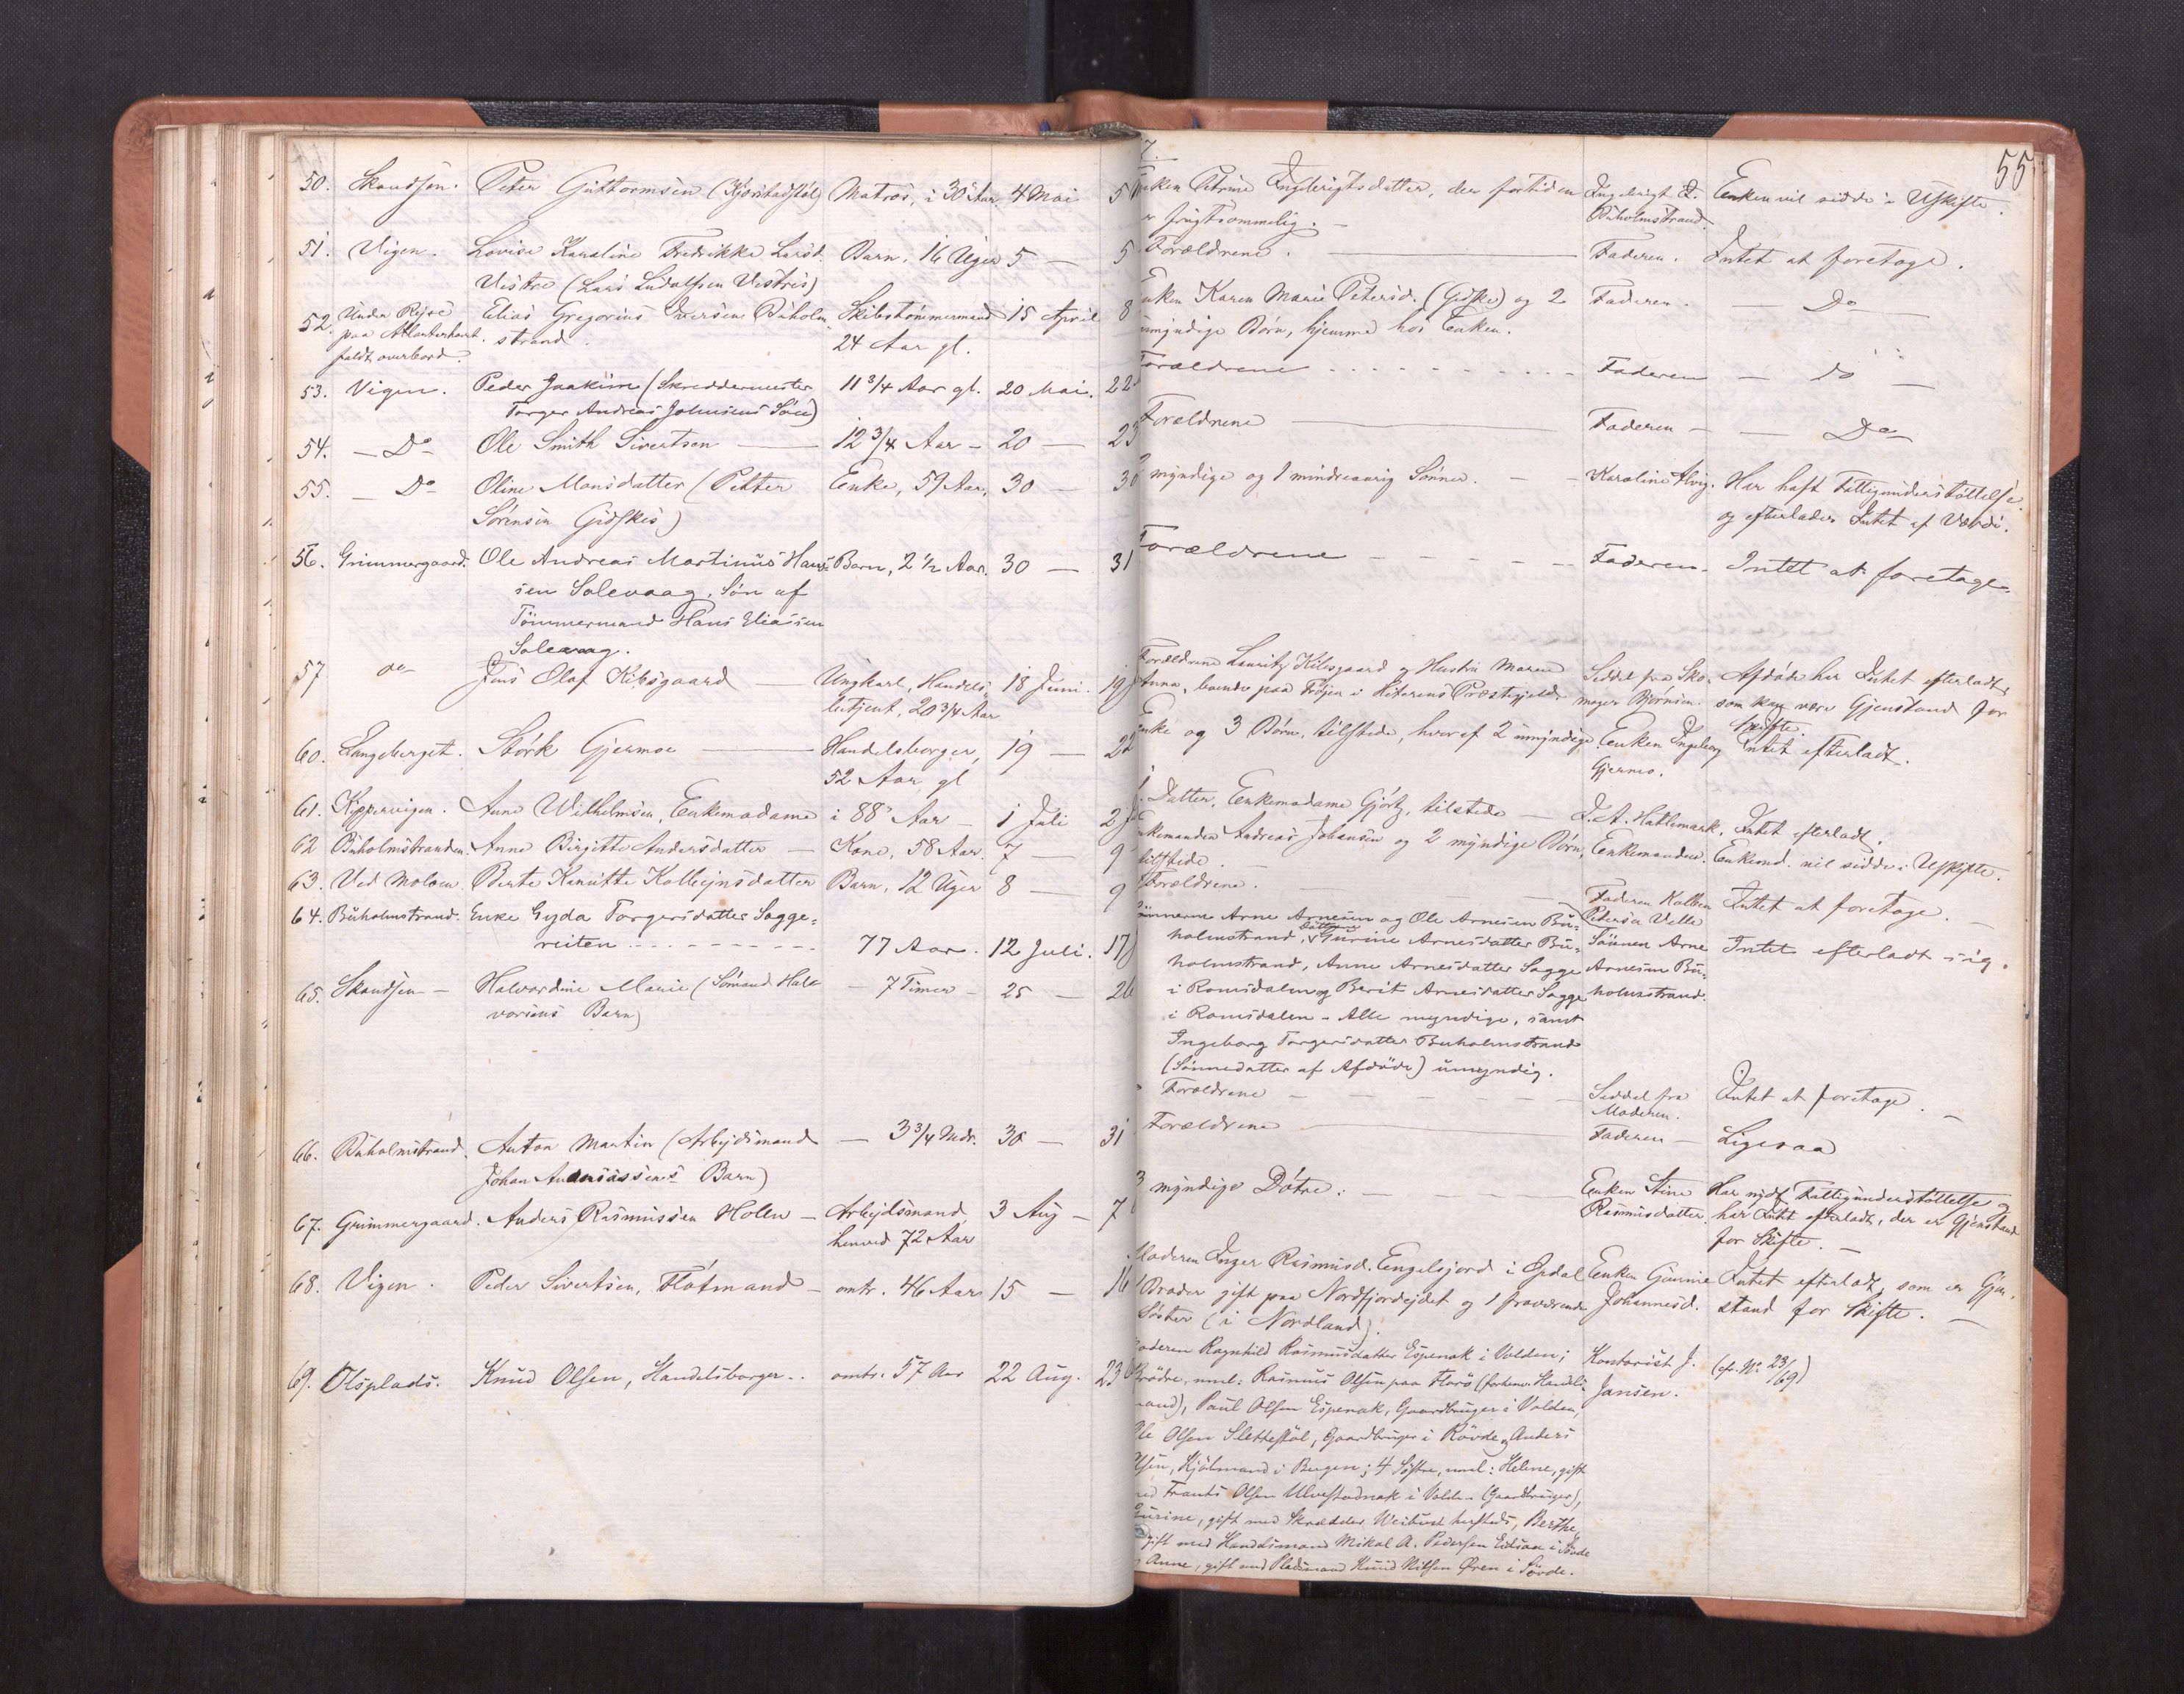 50. Skandsen. Peter Guttormsen (Kjörstadstöl) Matros, i 30 Aar. 4 Mai 5
51. Vigen. Lovise Karoline Fredrikke Larsd. Barn, 16 Uger 5 — 5
Vistre (Lars Ludolfsen Vestres)
52. Under Rejse Elias Gregorius Iversen Buholm Skibstömmermand 15 April 8
paa Atlanterhavet. strand. 24 Aar gl.
faldt overbord.
53. Vigen. Peder Joakim (Skreddermester 11 3/4 Aar gl. 20 Mai. 22
Torger Andreas Johnsens Sön)
54. — Do Ole Smith Sivertsen — 12 3/4 Aar - 20 — 23
55. — Do Oline Monsdatter (Petter Enke, 57 Aar, 30 — 30
Sörensen Gidskes)
56. Grimmergaard. Ole Andreas Martinus Hans= Barn, 2 1/2 Aar. 30 — 31
sen Solevaag, Sön af
Tömmermand Hans Eliassen
Solevaag.
57 do Jens Olaf Kibsgaard — Ungkarl, Handels 18 Juni. 19
betjent, 20 3/4 Aar
60. Langeberget. Störk Gjermoe — Handelsborger, 19 — 22
52 Aar gl
61. Kippervigen. Anne Wilhelmsen, Enkemadame i 88 Aar — 1 Juli 2
62 Buholmstranden. Anne Birgitte Andersdatter — Kone, 58 Aar. 7 — 9
63. Ved Moloen. Berte Karoline Kolbejnsdatter Barn, 12 Uger 8 — 9
64. Buholmstrand. Enke Gyda Torgersdatter Sogge=
reiten - - - - 77 Aar. 12 Juli. 17
65. Skandsen — Halvardine Marie (Sömand Hal — 7 Timer — 25 — 26
vorsens Barn)
66. Buholmstrand. Anton Martin (Arbejdsmand — 3 3/4 Mdr. 30 — 31
Johan Ananiassens Barn)
67. Grimmergaard. Anders Rasmussen Holen — Arbejdsmand 3 Aug — 7
henved 72 Aar
68. Vigen. Peder Sivertsen, Flötmand — omtr. 46 Aar 15 — 16
69. Olsplads. Knud Olsen, Handelsborger.. omtr. 57 Aar 22 Aug. 23
55
7.
Enken Petrine Ingebrigtsdatter, der fortiden Ingebrigt Buholmstrand. Enken vil sidde i Uskifte.
er frugtsommelig. —
Forældrene. — Faderen. Intet at foretage.
Enken Karen Marie Petersd. (Gidske) og 2 Faderen. Do
umyndige Börn, hjemme hos Enken.
Forældrene - - - - Faderen — do —
Forældrene — Faderen — Do
myndige og 1 mindreaarig Sönner. — Karoline Alvig. Har haft Fattigunderstöttelse
og efterlader Intet af Værdi.
Forældrene — Faderen. Intet at foretage.
Forældrene Lauritz Kibsgaard og Hustru Maren Seddel fra Sko- Afdöde har Intet efterladt,
Anna, boende paa Fröjen i Hiterens Præstegjeld. mager Björnsen. som kan være Gjenstand for
Skifte.
Enke og 3 Börn, tilstede, hvoraf 2 umyndige. Enken Ingeborg Intet efterladt.
Gjermo.
1. Datter, Enkemadame Gjörtz, tilstede — A. Hatlemark. Intet efterladt.
Enkemanden Andreas Johansen og 2 myndige Börn, Enkemanden. Enkemd. vil sidde i Uskifte.
tilstede.
Forældrene. — Faderen Kolben Intet at foretage.
Pedersen Velle
Sönnerne Arne Arnesen og Ole Arnesen Bu=
holmstrand, Döttrene Gurine Arnesdatter Bu= Sönnen Arne Intet efterladt sig.
holmstrand, Anne Arnesdatter Sogge Arnesen Bu=
i Romsdalen og Berit Arnesdatter Sogge holmstrand.
i Romsdalen - Alle myndige, samt
Ingeborg Torgersdatter Buholmstrand
(Sönnedatter af Afdöde) umyndig.
Forældrene — Seddel fra Intet at foretage. —
Moderen.
Forældrene — Faderen — Ligesaa
3 myndige Dötre. — Enken Stine Har nydt Fattigunderstöttelse og
Rasmusdatter. har Intet efterladt, der er Gjenstand
for Skifte. —
Moderen Inger Rasmusd. Engelsjord i Opdal Enken Gurine Intet efterladt, som er Gjen-
1 Broder gift paa Nordfjordejdet og 1 fraværende Johannesd. stand for Skifte. —
Söster (i Nordland).
Moderen Ragnhild Rasmusdatter Espenak i Volden; Kontorist J. (cfr. No 23/69)
Brödre, nml: Rasmus Olsen paa Florö (forhenv. Handels= Jansen.
mand), Paul Olsen Espenak, Gaardbruger i Volden,
Ole Olsen Slettestöl, Gaardbruger i Rövde og Anders
Olsen, Kjölmand i Bergen; 4 Söstre, nml: Helene, gift
med Frants Olsen Ulvestadnak i Volden (Gaardbruger),
Gurine, gift med Skrædder hersteds, Berthe,
gift med Handelsmand Mikal A. Pedersen Eidsaa i Sövde
og Anne, gift med Pladsmand Knud Nilsen Ören i Sövde.